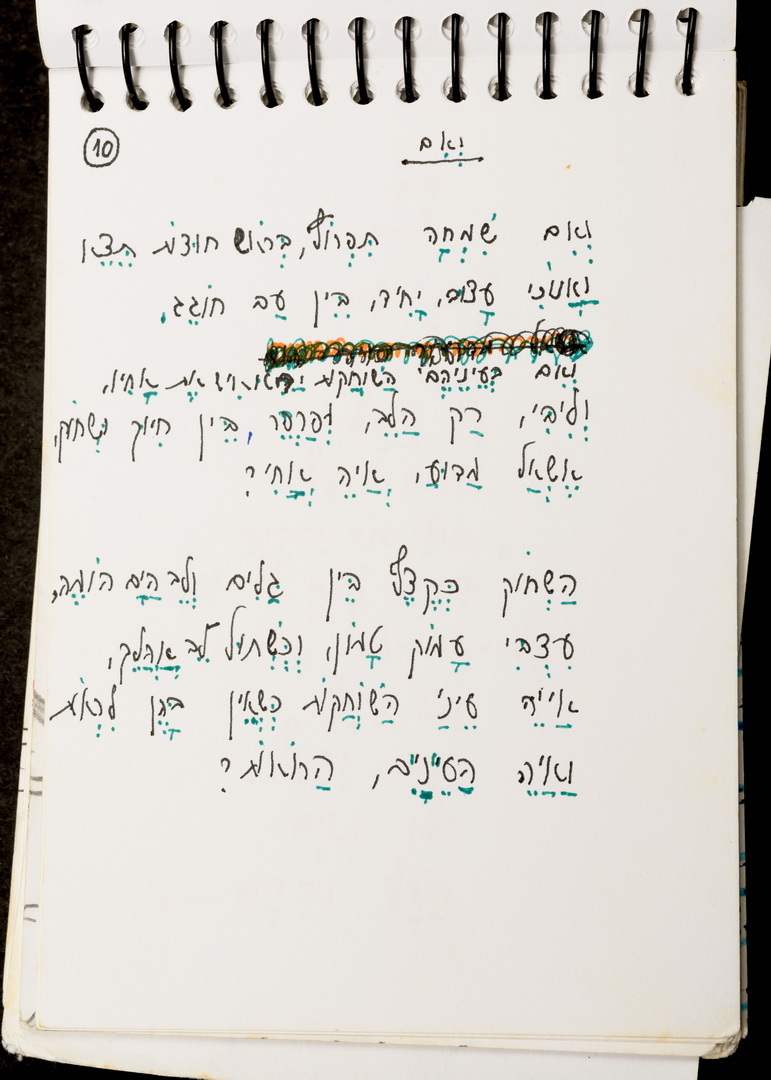 10
וְאִם
וְאִם שִׂמְחָה תִּפְרוֹץ, בְּרֹאשׁ חוּצוֹת תֵּצֵא
וַאֲנוֹכִי עָצוּב, יָחִיד, בֵּין עַם חוֹגֵג.
וְאִם בְּעֵינֵיהֶם הַשּׂוֹחֲקוֹת אִישׁ אֶת אָחִיו,
וְלִיבִּי, רַק הַלֵּב, יְפַרְפֵּר, בֵּין חִיּוּךְ וּשְׂחוֹק,
אֶשְׁאַל מַדּוּעַ, אַיֵּה אָחִי?
הַשְּׂחוֹק כְּקֶצֶף בֵּין גַּלִּים וְלֵב הַיָּם הוֹמֶה,
עִצְבִּי עָמוֹק טָמוּן, וּכְשֶׁחוֹל לֵב אֲהַלֵּךְ,
אַיֵּה עֵינַי הַשּׂוֹחֲקוֹת כְּשֶׁאֵין בָּהֶן לִרְאוֹת
וְאַיֵּה הָעֵינַיִים, הָרוֹאוֹת?